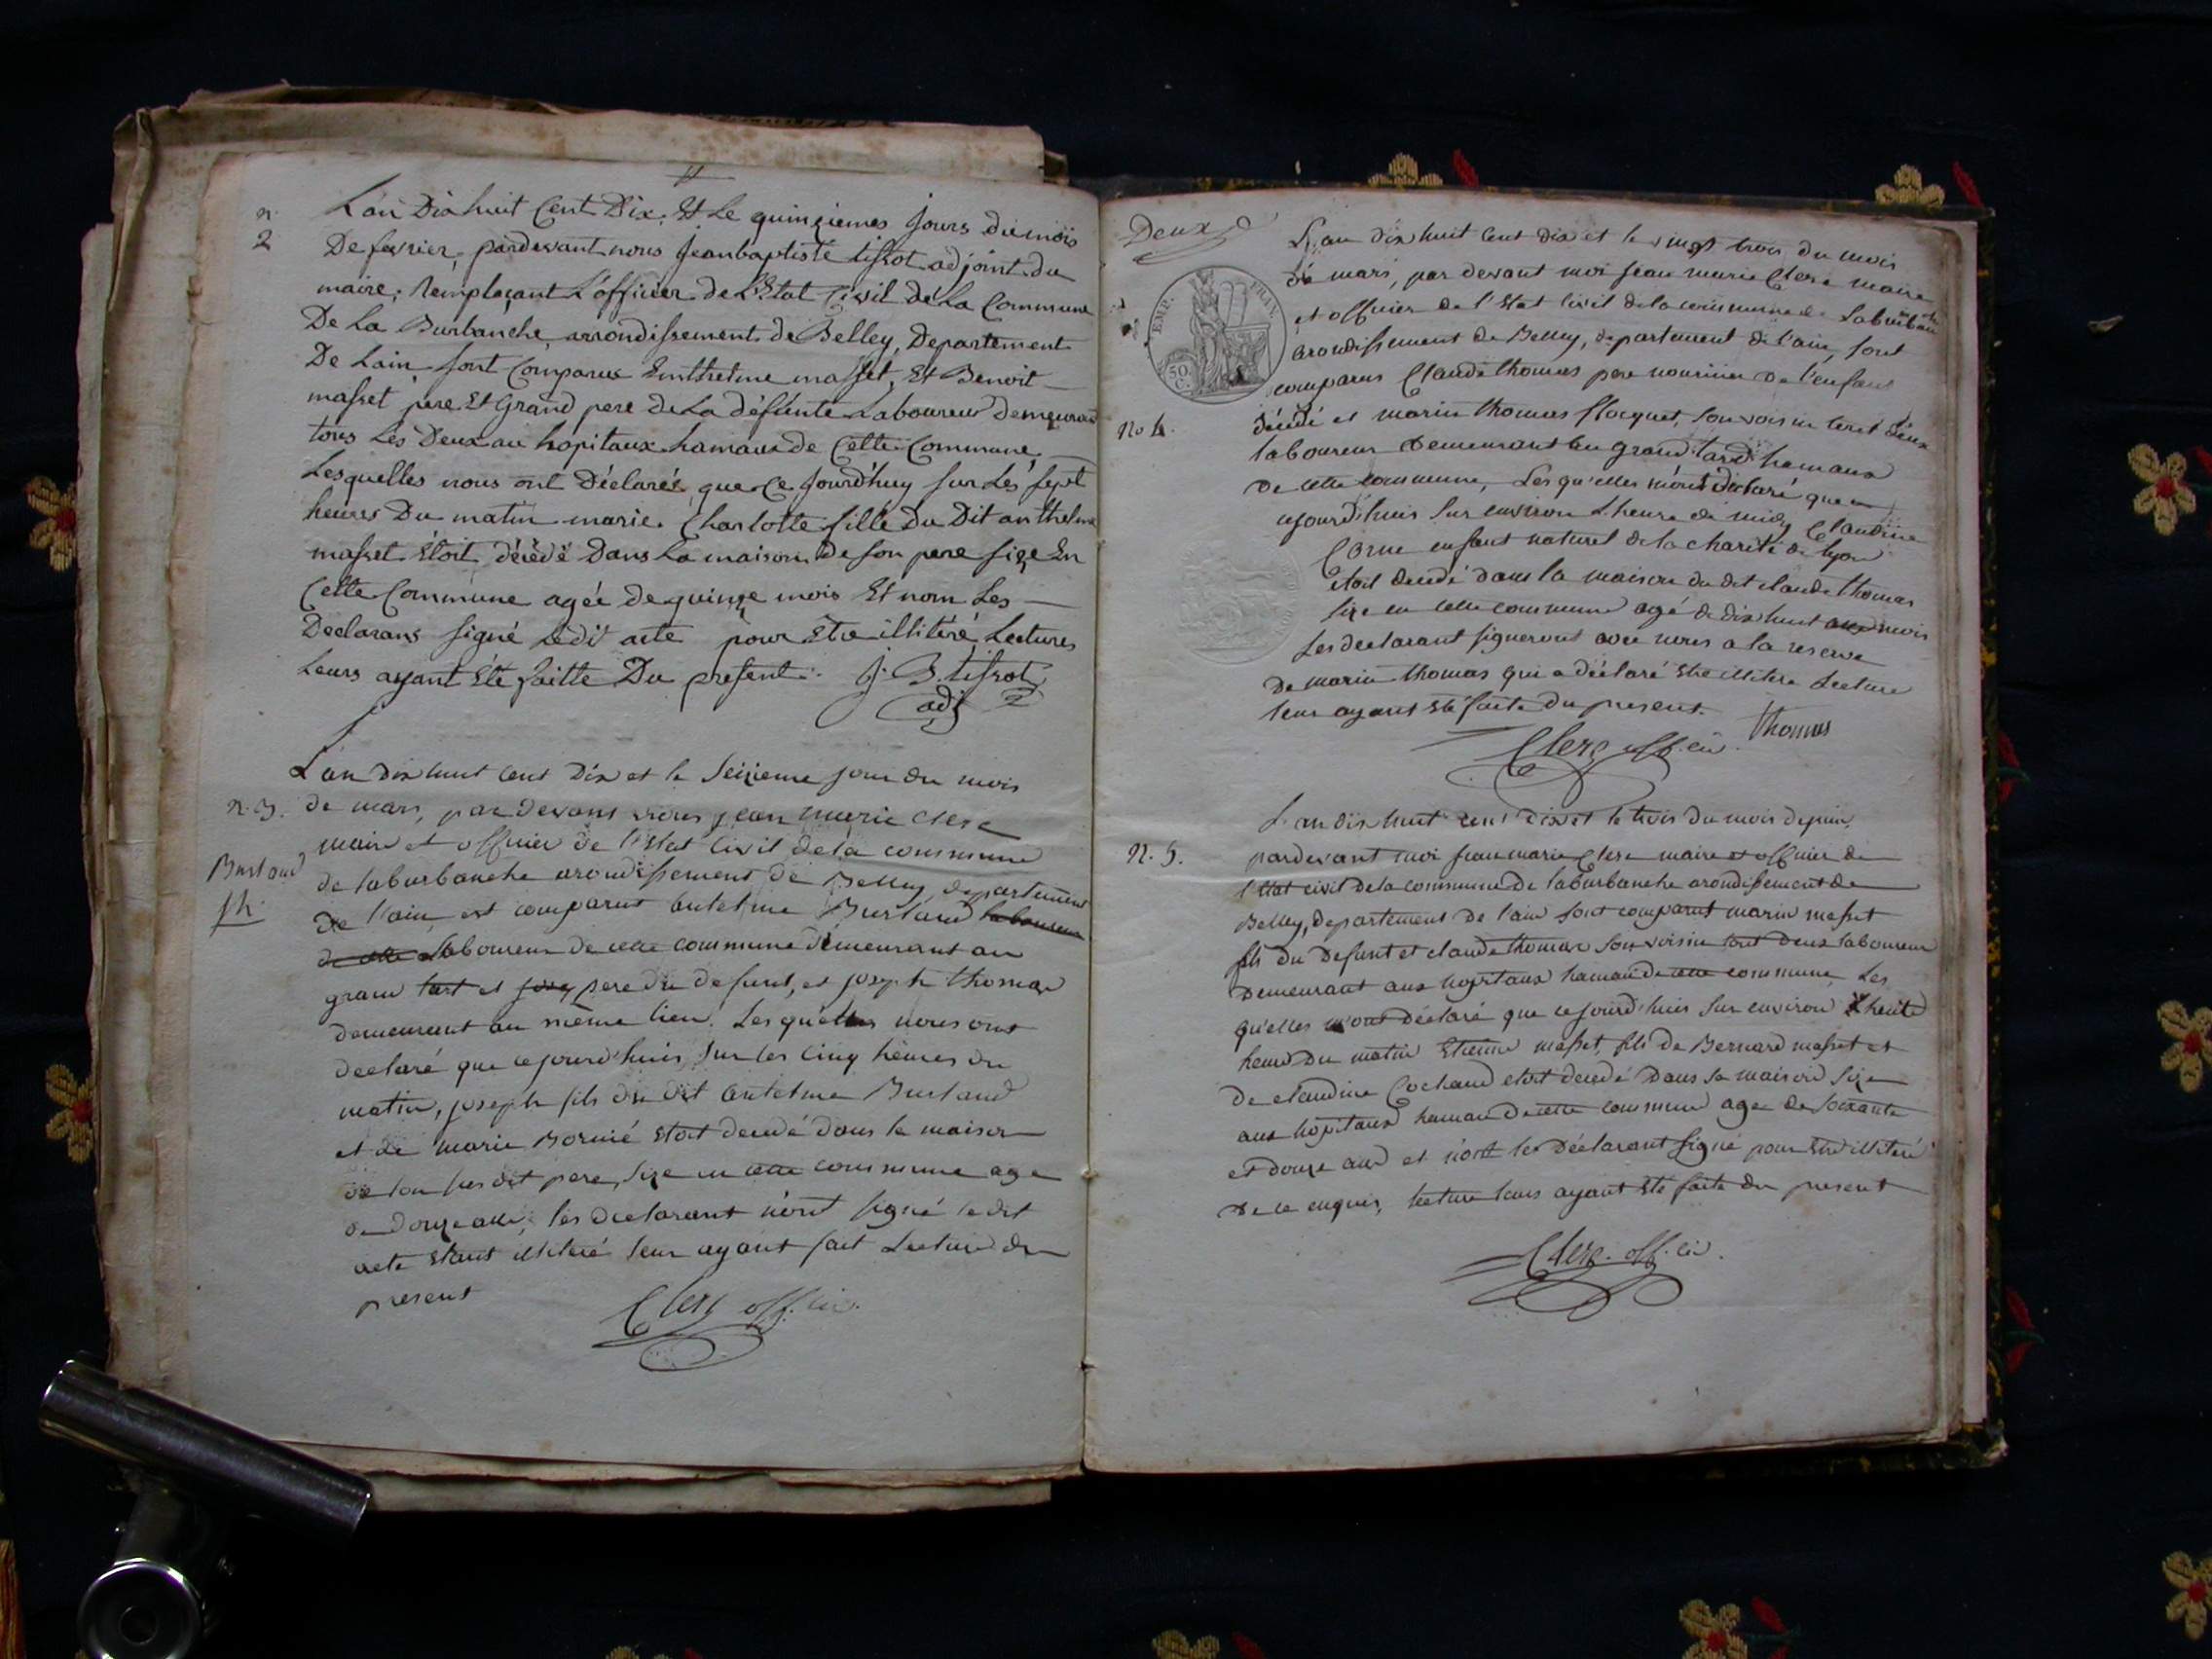 n.
2
L'an Dix huit Cent Dix, Et Le quinziemes Jours du mois
De fevrier, pardevant nous Jean baptiste tissot adjoint du
maire, Remplaçant L'officier de L'Etat Civil de La Commune
De La Burbanche, arrondissement de Belley, Departement
De Lain sont Comparus Emthelme masset, Et Benoit
masset pere Et Grand pere de La défunte Laboureur Demeurant
tous Les Deux au hopitaux hamaux de Cette Commune
Lesquelles nous ont Déclarés que Ce Jourd'huy sur Les sept
heures Du matin marie Charlotte fille Du Dit anthelme
masset Étoit décédé Dans La maison De son pere size En
Cette Commune agée de quinze mois Et nom Les
Declarans signé Ledit acte pour Etre illitéré Lectures
Leurs ayant Eté faitte Du present. J. B. tissot
adj
L'an dix huit cent Dix et le seizieme jour du mois
n. 3.
de mars, par devant nous jean marie Clerc
maire et officier de l'Etat Civil de la commune
Burtaud
de laburbanche arondissement de Belley departement
jh.
de l'ain est comparut antelme Burtaud laboureur
de cette laboureur de cette commune demeurant au
grand tart et josep pere du defunt, et joseph thomas
demeurant au même lieu. Les quelles nous ont
declaré que ce jourd'huis sur les cinq heures du
matin, joseph fils du dit antelme Burtaud
et de marie Bornié etoit decedé dans la maison
de son susdit pere, size en cette commune age
de douze ans, les declarant n'ont signé le dit
acte Etant illiteré leur ayant fait Lecture du
present
Clerc off. civ.
Deux
L'an dix huit cent dix et le vingt trois du mois
de mars, par devant moi jean marie Clerc maire
et officier de l'Etat Civil de la commune de Laburbanche
arondissement de Belley, departement de l'ain, sont
EMP. FRAN.
50 C.
comparus Claude thomas pere nourricier de l'enfant
No 4.
décédé et marin thomas floquet, son voisin tout deux
laboureur demeurant au grand tard hamaux
de cette commune, Les qu'elles m'ont declaré que
cejourd'huis sur environ L'heure de midy Claudine
Corne enfant naturel de la charité de lyon
etoit decedé dans la maison du dit claude thomas
size en cette commune agé de dix huit mois
Les declarant signeront avec nous a la reserve
De marin thomas qui a déclaré Etre illitere Lecture
leur ayant eté faite du present. thomas
Clerc off. civ.
L'an dix huit cent dix et le trois du mois de juin,
N. 5.
pardevant moi jean marie Clerc maire et officier de
l'Etat civil de la commune de laburbanche arondissement de
Belley, departement de l'ain sont comparut marin masset
fils du Defunt et claude thomas son voisin tout deux laboureur
Demeurant aux hopitaux hamau de cette commune, Les
qu'elles m'ont déclaré que ce jourd'huis sur environ
heures Du matin Etienne masset, fils de Bernard masset et
de claudine Cochaud etoit decedé Dans sa maison size
aux hopitaux hamau de cette commune age de soixante
et douze ans et n'ont les Déclarant signé pour Etre illiteré
De ce enquis, lecture leurs ayant été faite du present
Clerc. off. civ.